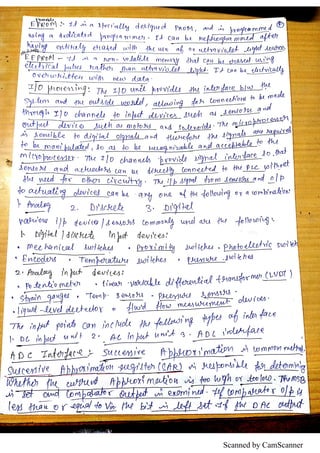 EPROM :- It is a specially designed PROM, and is programmed
using a dedicated programmer. It can be reprogrammed after
having entirely erased with the use of an ultraviolet light source.
EEPROM - It is a non-volatile memory that can be erased using
electrical pulses rather than ultraviolet light. It can be electrically
overwritten with new data.
I/O processing: The I/O unit provides the interface b/w the
system and the outside world, allowing for connections to be made
through I/O channels to input devices such as sensors and
output device such as motors and solenoids. The microprocessor
is sensible to digital signals and therefore the signals are required
to be manipulated, so as to be recognisable and acceptable to the
microprocessor. The I/O channels provide signal interface so that
sensors and actuators can be directly connected to the PLC without
the need for other circuitry. The i/p signal from sensors and o/p
to actuating devices can be any one of the following or a combination:
1. Analog 2. Discrete 3. Digital
various i/p device/sensors commonly used are the following:
1. Digital/discrete Input devices:
• Mechanical switches • Proximity switches • Photoelectric switch
• Encoders • Temperature switches • Pressure switches
2. Analog input devices:
• Potentiometer • Linear variable differential transformer (LVDT)
• Strain gauges • Temp. sensors • Pressure sensors.
• Liquid-level detector • fluid flow measurement devices.
The input points can include the following types of interface
1. DC input unit 2. AC Input unit 3. ADC interface
ADC Interface: Successive Approximation is common method.
Successive Approximation register (SAR) is responsible for determining
whether the current Approximation is too high or too low. The MSB
is set and comparator output is examined. If comparator o/p is
less than or equal to Vin the bit is left set. If the DAC output
Scanned by CamScanner